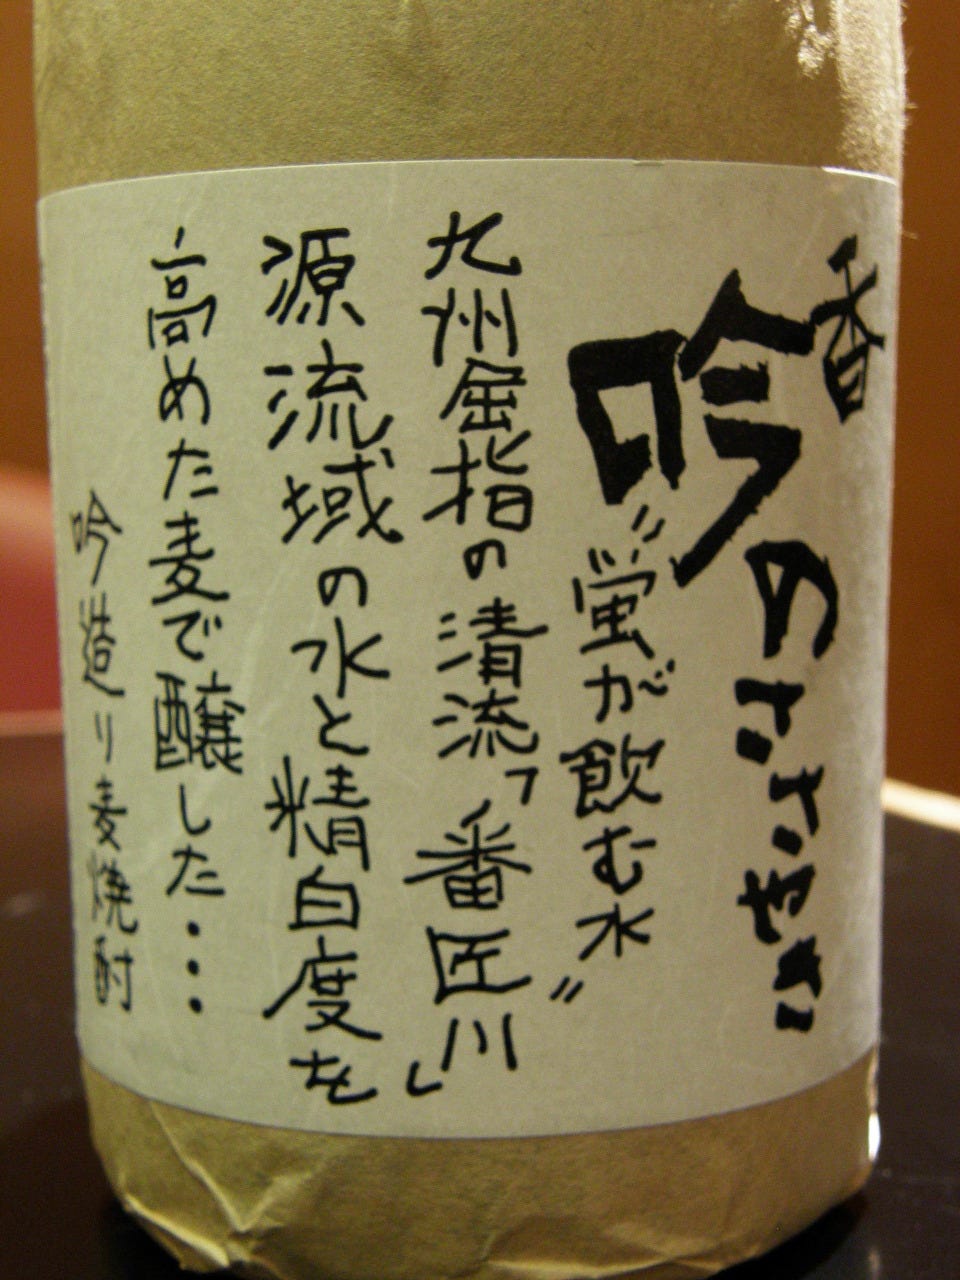 香吟のささやき
"蛍が飲む水"
九州屈指の清流「番匠川」
源流域の水と精白度を
高めた麦で醸した・・・
吟造り麦焼酎